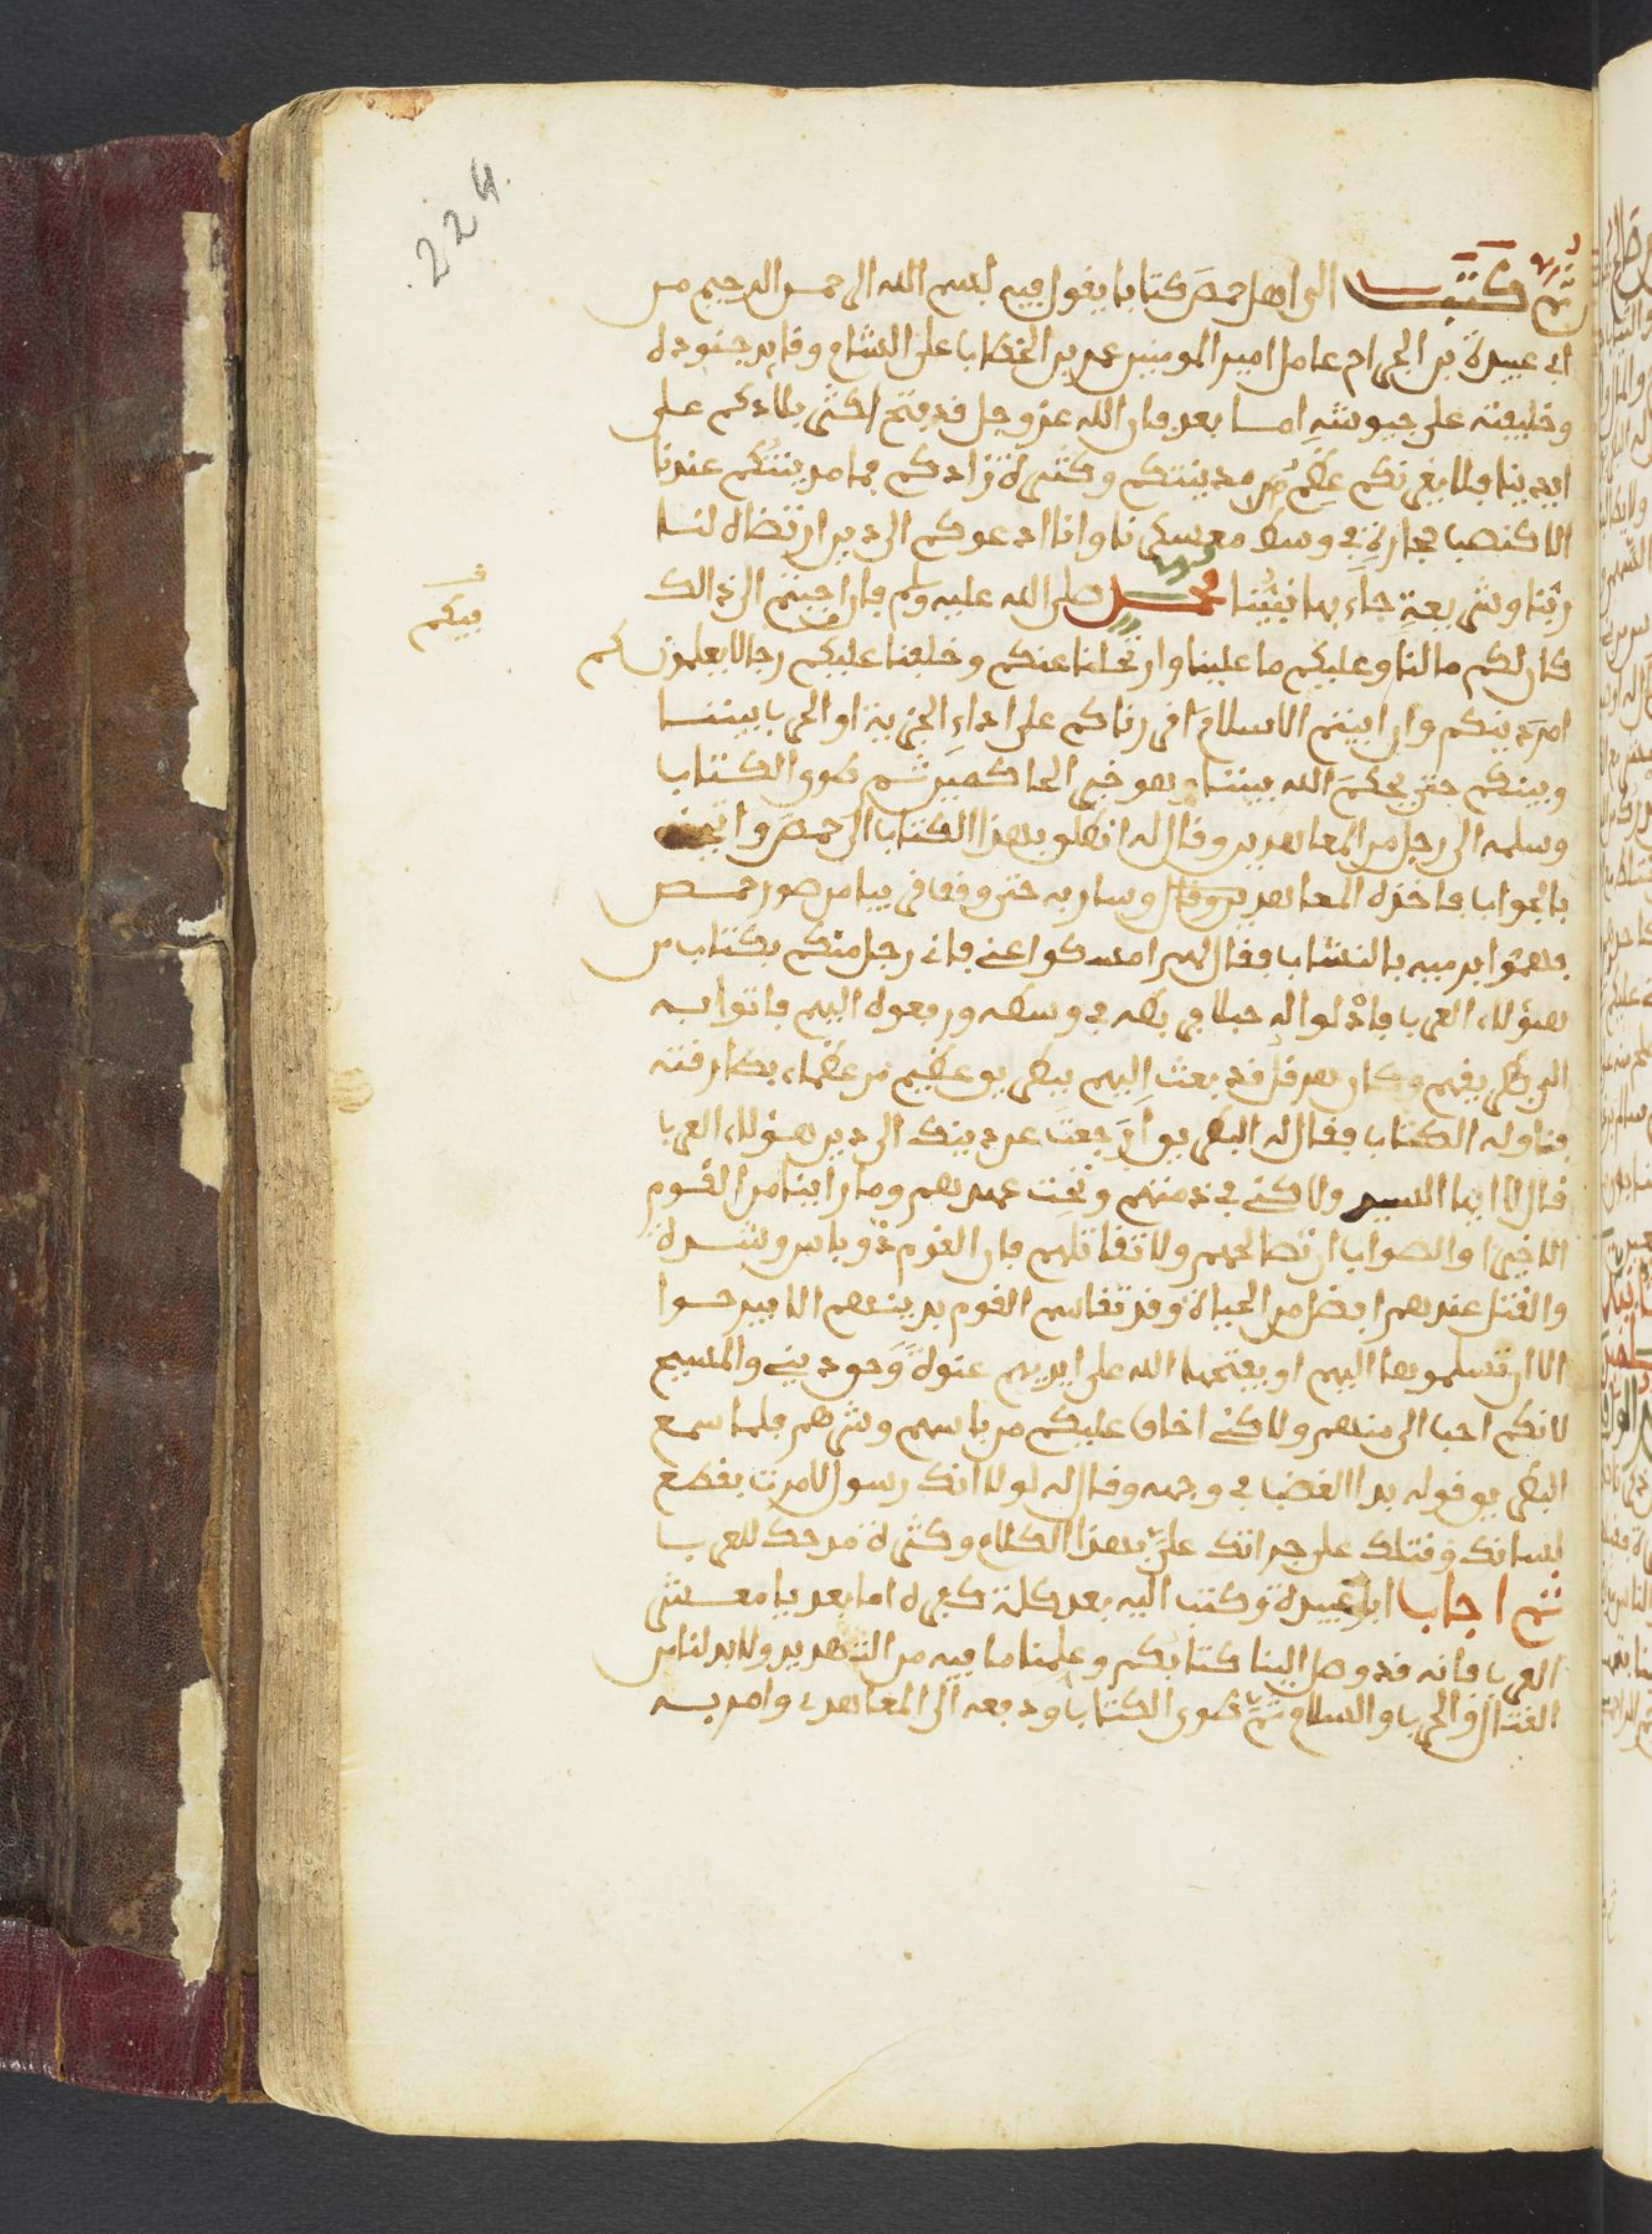 224
ثم كتب الى اهل حمص كتابا يقول فيه بسم الله الرحمن الرحيم من
ابي عبيدة بن الجراح عامل امير المومنين عمر بن الخطاب على الشام وقايد جنوده
وخليفته على جيوشه اما بعد فان الله عز وجل قد فتح اكثر بلادكم على
ايدينا فلا يغرنكم عظم مدينتكم وكثرة زادكم فما مدينتكم عندنا
الا كنصب حجارة في وسط معسكرنا وانا ادعوكم الى دين ارتضاه لنا
ربنا وشريعة جاء بها نبينا محمد صلى الله عليه وسلم فان اجبتم الى ذالك
كان لكم ما لنا وعليكم ما علينا وارتحلنا عنكم وخلفنا عليكم رجالا يعلمونكم
فيكم
امر دينكم وان ابيتم الاسلام اقررناكم على اداء الجزية او الحرب بيننا
وبينكم حتى يحكم الله بيننا وهو خير الحاكمين ثم طوى الكتاب
وسلمه الى رجل من المعاهدين وقال له انطلق بهذا الكتاب الى حمص واتيني
بالجواب فاخذه المعاهدي وسار به حتى وقف قريبا من صور حمص
فهموا برميه بالنشاب فقال لهم امسكوا عني فاني رجل منكم بكتاب من
هؤلاء العرب فادلوا له حبلا فربطه في وسطه ورفعوه اليهم فاتوا به
البطريقهم وكان هرقل قد بعث اليهم ببطريق عظيم من عظماء بطارقته
فناوله الكتاب فقال له البطريق ارجعت عن دينك الى دين هؤلاء العرب
قال لا ايها السيد ولاكني في ذمتهم وتحت عهدهم وما راينا من القوم
الا خيرا والصواب ان تصالحهم ولا تقاتلهم فان القوم ذو باس وشدة
والقتل عندهم افضل من الحياة وقد تقاسم القوم بدينهم الا يبرحوا
الا ان تسلموها اليهم او يفتحها الله على ايديهم عنوة وحق ديني والمسيح
لانكم احب الي منهم ولاكني اخاف عليكم من باسهم وشرهم فلما سمع
البطريق قوله بدا الغضب في وجهه وقال له لولا انك رسول لامرت بقطع
لسانك وقتلك على جراتك علي بهذا الكلام وكثرة مدحك للعرب
ثم اجاب ابا عبيدة وكتب اليه بعد كلمة كفره اما بعد يا معشر
العرب فانه قد وصل الينا كتابكم وعلمنا ما فيه من التهديد ولا بد لنا من
القتال والحرب والسلام ثم طوى الكتاب ودفعه الى المعاهدي وامر به